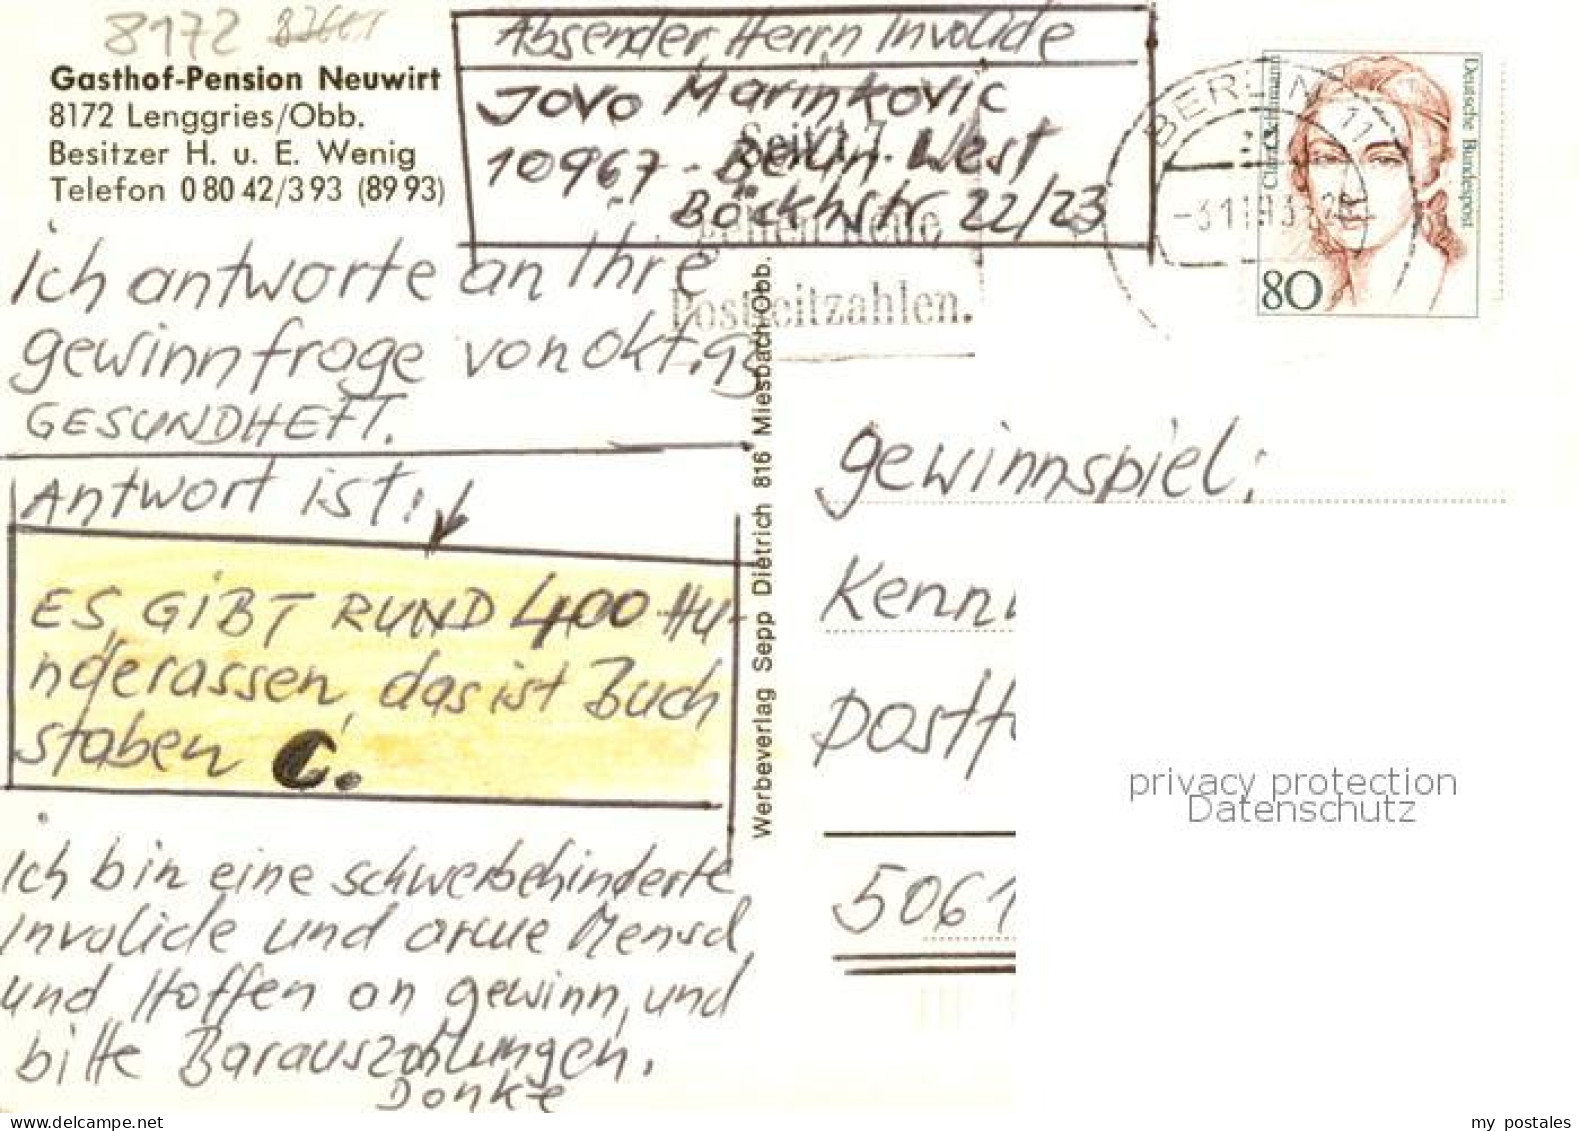 8172
Gasthof-Pension Neuwirt
8172 Lenggries/Obb.
Besitzer H. u. E. Wenig
Telefon 0 80 42/3 93 (89 93)
Absender, Herrn Invalide
JOVO Marinkovic
10967 - Berlin West
Böckhstr 22/23
Seit 1.7.
gelten neue
Postleitzahlen.
BERLIN 11
-3.11.93
Clara Schumann
Deutsche Bundespost
80
Ich antworte an Ihre
gewinnfrage von Okt. 93
GESUNDHEIT.
Antwort ist:
ES GIBT RUND 400 Hu-
nderassen, das ist Buch
staben C.
Ich bin eine schwerbehinderte
Invalide und arme Mensch
und Hoffen an gewinn, und
bitte Barauszahlungen.
Danke
Werbeverlag Sepp Dietrich 816 Miesbach/Obb.
gewinnspiel;
Kenn
postf
5061
privacy protection
Datenschutz
my postales
www.delcampe.net